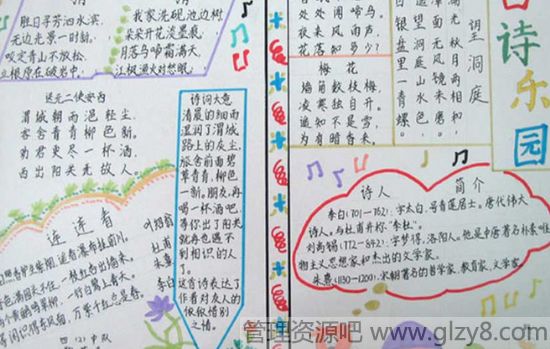 胜日寻芳泗水滨
无边光景一时新
咬定青山不放松
立根原在破岩中
我家洗砚池边树
朵朵开花淡墨痕
月落乌啼霜满天
江枫渔火对愁眠
处处闻啼鸟
夜来风雨声
花落知多少
梅花
墙角数枝梅
凌寒独自开
遥知不是雪
为有暗香来
望洞庭
诗乐园
送元二使安西
渭城朝雨浥轻尘
客舍青青柳色新
劝君更尽一杯酒
西出阳关无故人
诗词大意
清晨的细雨
湿润了渭城
路上的灰尘,
旅舍前面碧
草青青,柳色
一新。朋友,再
喝一杯酒吧,
等你出了阳关
就再也遇不
到相识的人
了。
这首诗表达了
作者对友人的
依依惜别
之情。
连连看
叶绍翁
杜甫
朱熹
李白
诗人简介
李白(701-762):字太白,号青莲居士。唐代伟大
诗人。与杜甫并称“李杜”。
刘禹锡(772-842):字梦得,洛阳人。他是中唐著名朴素唯
物主义思想家和杰出的文学家。
朱熹(1130-1200)宋朝著名的哲学家、教育家、文学家。
管理资源吧 www.glzy8.com